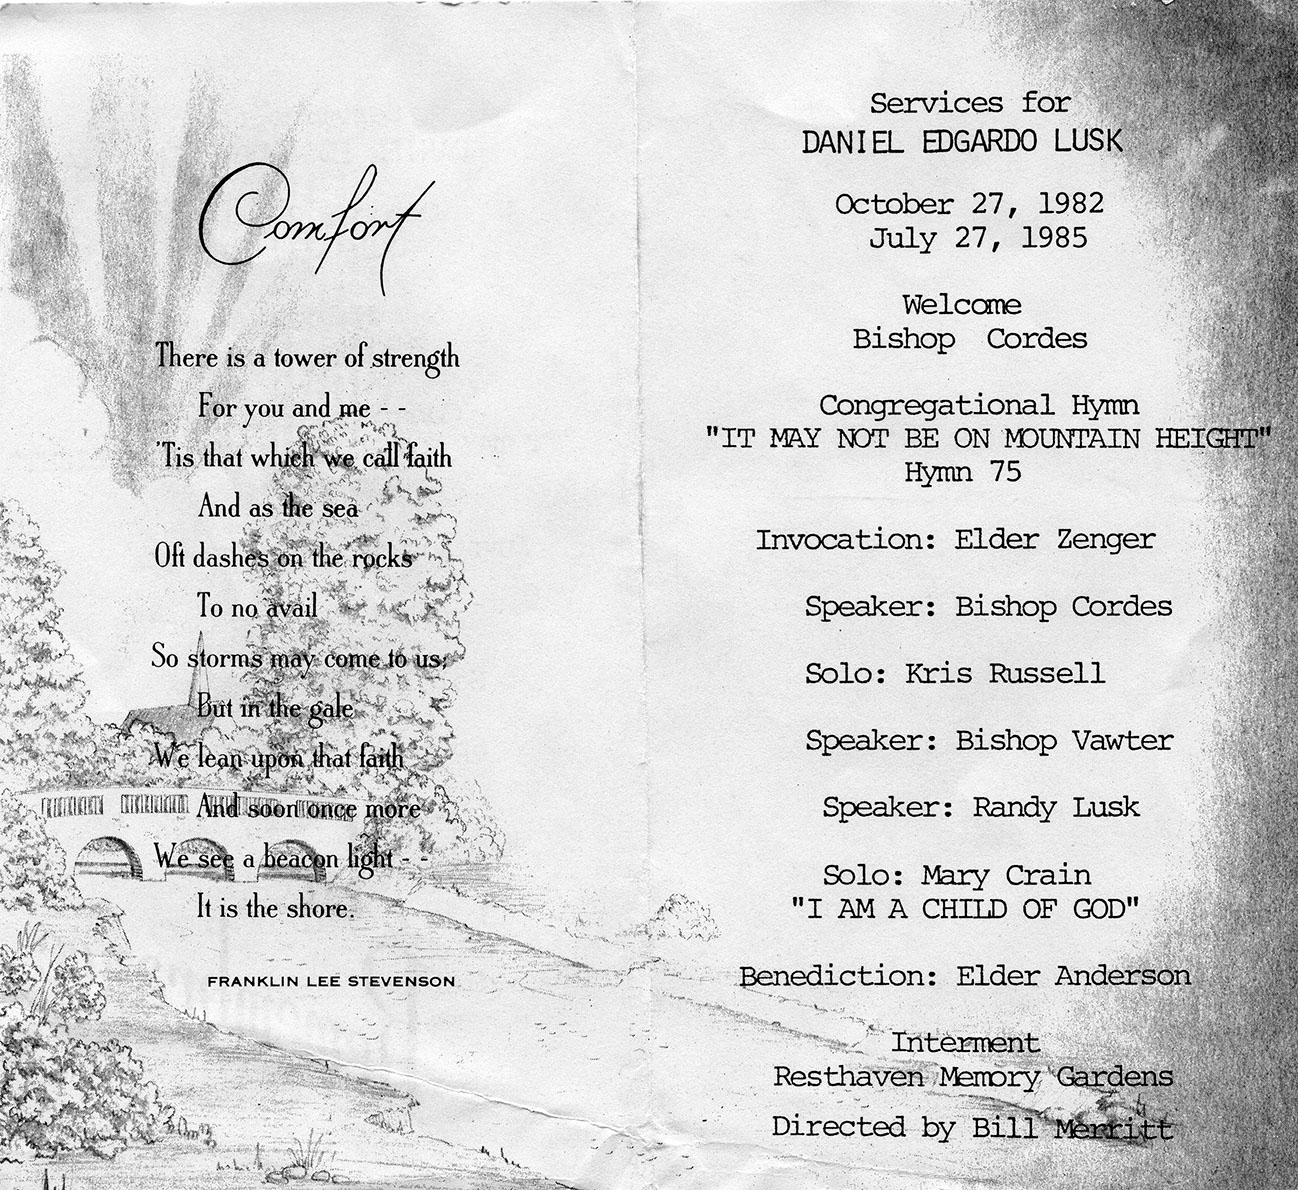 Comfort
There is a tower of strength
For you and me - -
'Tis that which we call faith
And as the sea
Oft dashes on the rocks
To no avail
So storms may come to us;
But in the gale
We lean upon that faith
And soon once more
We see a beacon light - -
It is the shore.
FRANKLIN LEE STEVENSON
Services for
DANIEL EDGARDO LUSK
October 27, 1982
July 27, 1985
Welcome
Bishop Cordes
Congregational Hymn
"IT MAY NOT BE ON MOUNTAIN HEIGHT"
Hymn 75
Invocation: Elder Zenger
Speaker: Bishop Cordes
Solo: Kris Russell
Speaker: Bishop Vawter
Speaker: Randy Lusk
Solo: Mary Crain
"I AM A CHILD OF GOD"
Benediction: Elder Anderson
Interment
Resthaven Memory Gardens
Directed by Bill Merritt